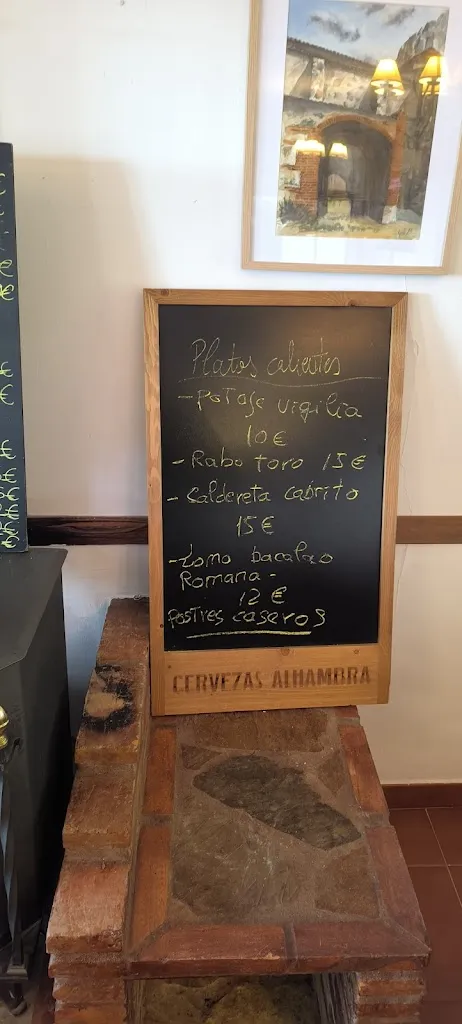 Platos calientes
- Potaje vigilia
10 €
- Rabo toro 15 €
- Saldereta cabrito
15 €
- Lomo bacalao
Romana -
12 €
Postres caseros
CERVEZAS ALHAMBRA